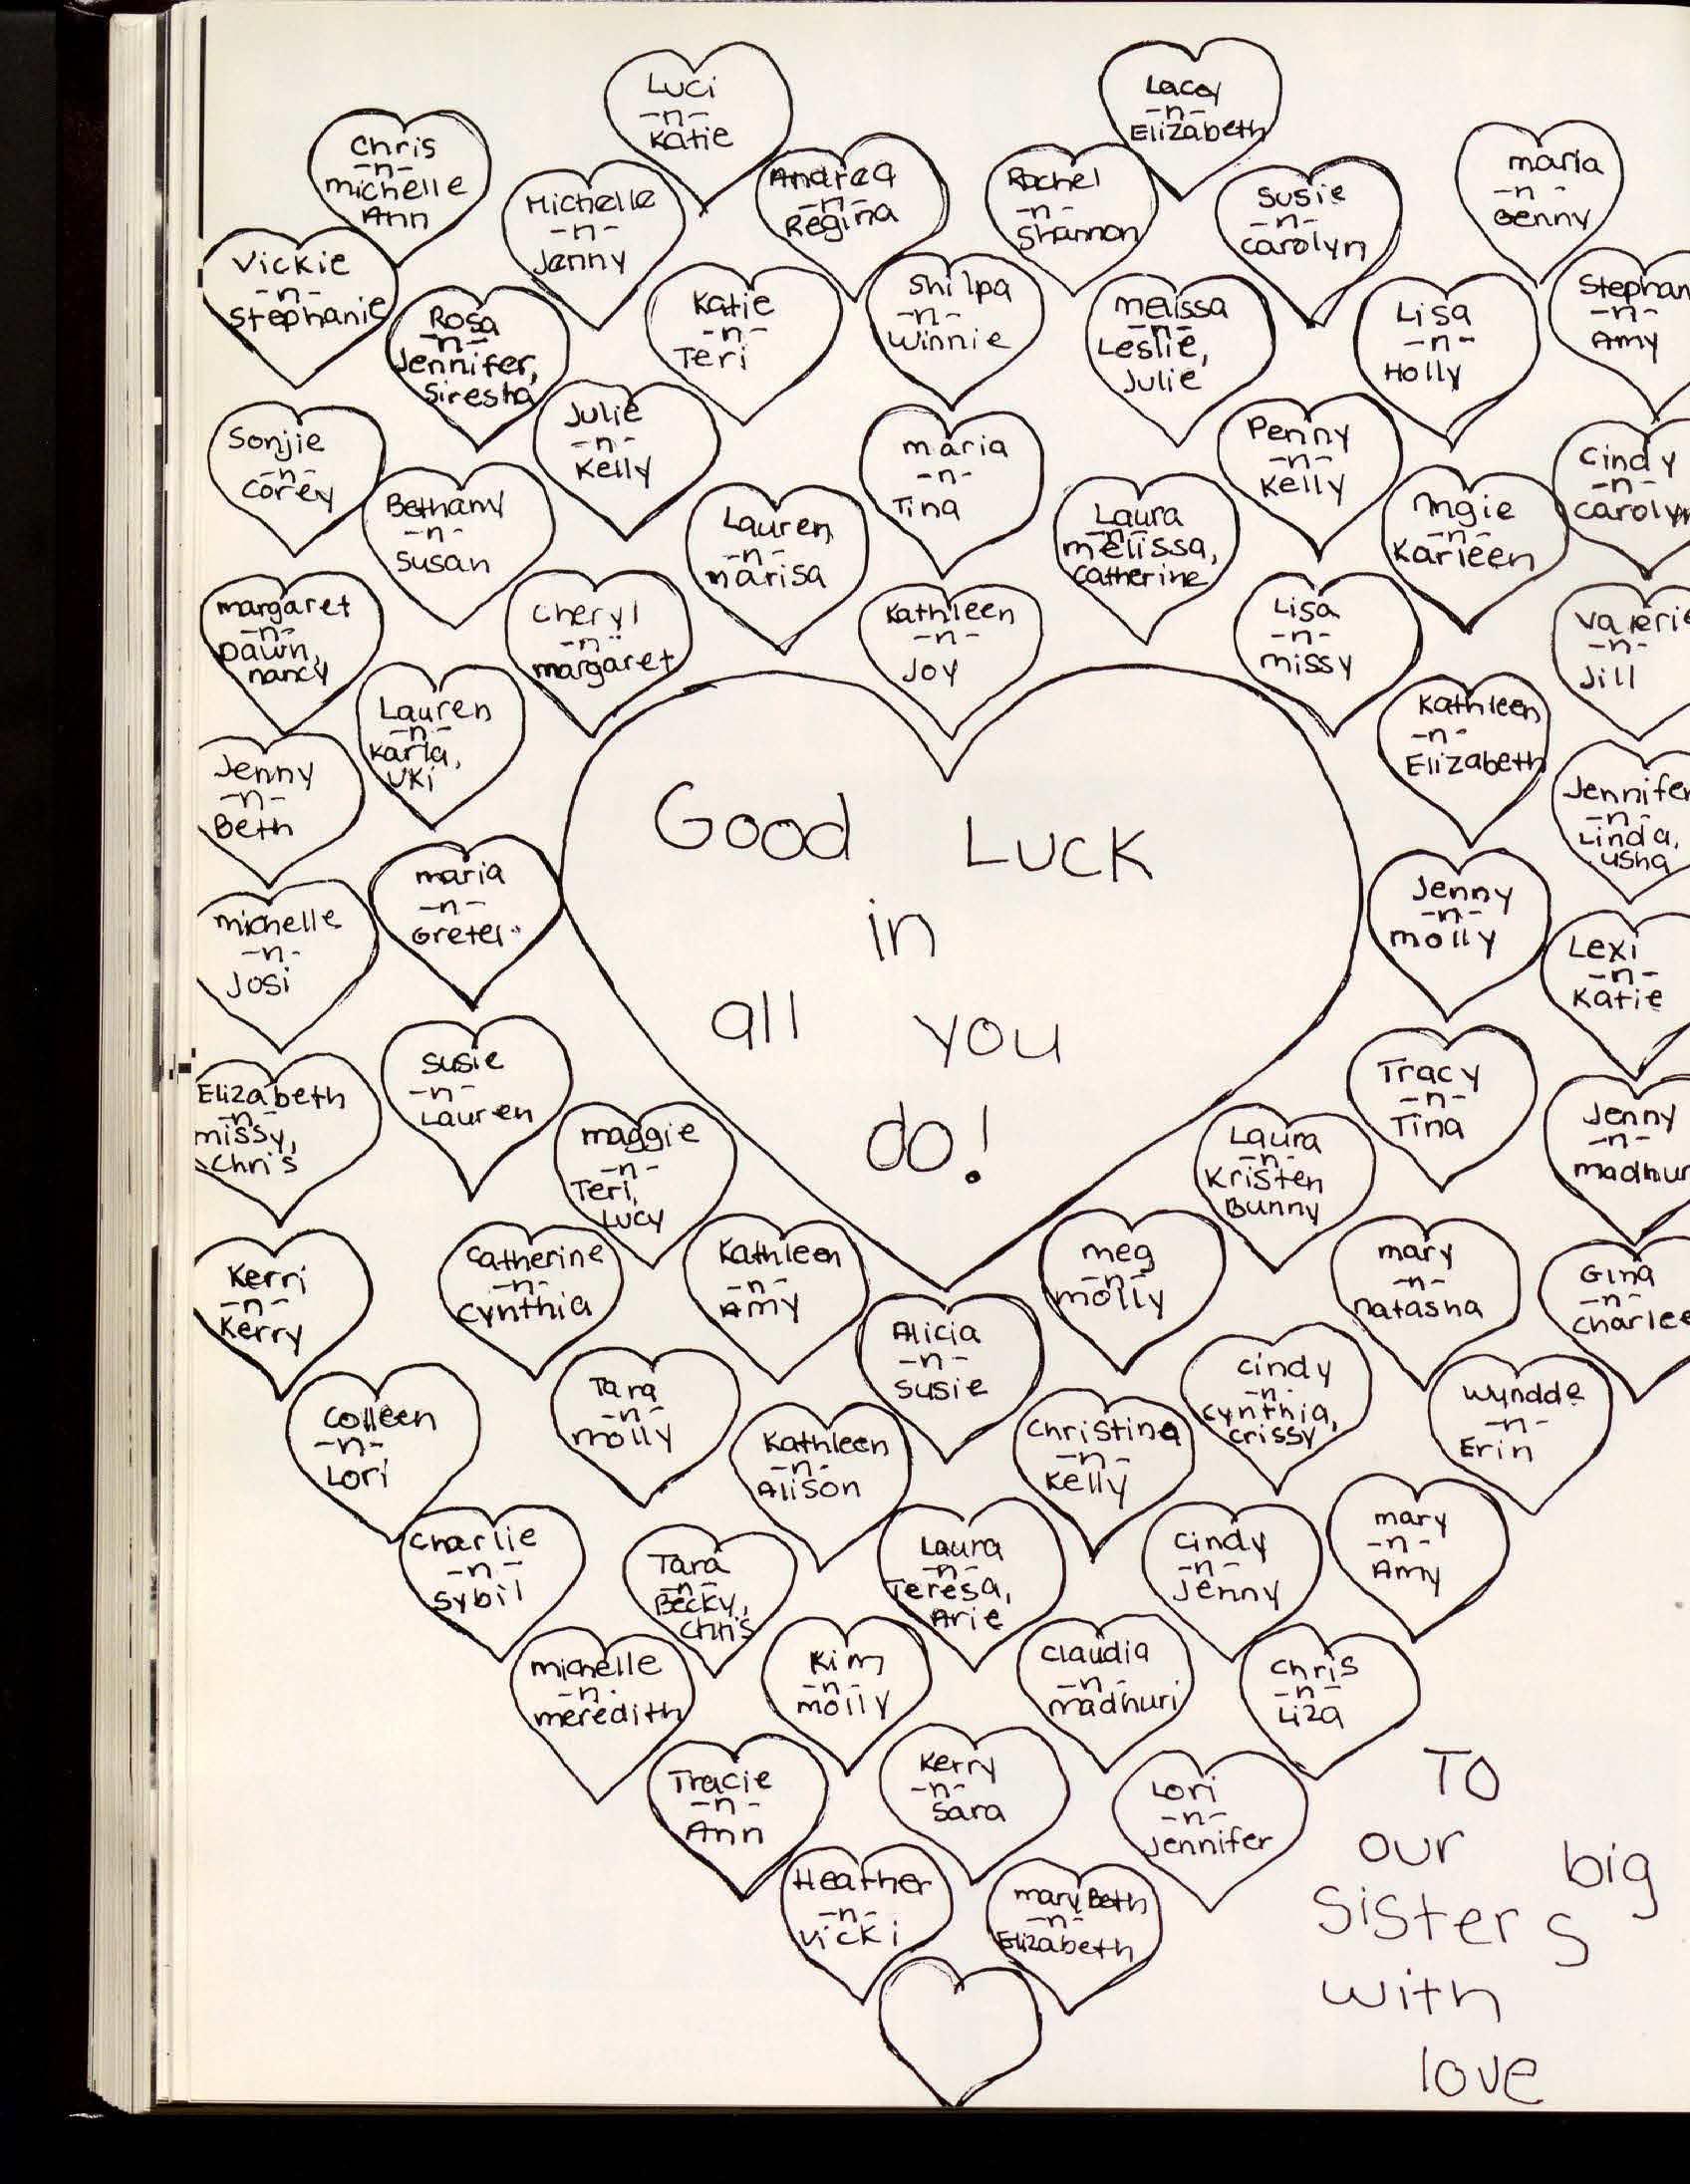 Luci
-n-
Katie
Lacey
-n-
Elizabeth
Chris
-n-
michelle
Ann
Michelle
-n-
Jenny
Andrea
-n-
Regina
Rachel
-n-
Shannon
Susie
-n-
Carolyn
maria
-n-
Genny
Vickie
-n-
Stephanie
Rosa
-n-
Jennifer,
Siresha
Katie
-n-
Teri
Shilpa
-n-
Winnie
melissa
-n-
Leslie,
Julie
Lisa
-n-
Holly
Stephan
-n-
Amy
Sonjie
-n-
Corey
Bethany
-n-
Susan
Julie
-n-
Kelly
Lauren
-n-
marisa
maria
-n-
Tina
Laura
-n-
melissa,
Catherine
Penny
-n-
Kelly
Angie
-n-
Karleen
Cindy
-n-
Carolyn
margaret
-n-
Dawn,
nancy
Lauren
-n-
Karla,
Uki
Cheryl
-n-
margaret
Kathleen
-n-
Joy
Lisa
-n-
missy
Kathleen
-n-
Elizabeth
Valerie
-n-
Jill
Jenny
-n-
Beth
maria
-n-
Gretel
Good Luck
in
all you
do!
Jenny
-n-
molly
Jennifer
-n-
Linda,
Usha
michelle
-n-
Josi
Susie
-n-
Lauren
Tracy
-n-
Tina
Lexi
-n-
Katie
Elizabeth
-n-
missy,
Chris
maggie
-n-
Teri,
Lucy
Laura
-n-
Kristen
Bunny
Jenny
-n-
madhur
Kerri
-n-
Kerry
Catherine
-n-
Cynthia
Kathleen
-n-
Amy
Alicia
-n-
Susie
meg
-n-
molly
mary
-n-
natasha
Gina
-n-
Charlee
Colleen
-n-
Lori
Tara
-n-
molly
Kathleen
-n-
Alison
Christina
-n-
Kelly
Cindy
-n-
Cynthia,
Crissy
Wyndde
-n-
Erin
Charlie
-n-
Sybil
Tara
-n-
Becky,
Chris
Laura
-n-
Teresa,
Arie
Cindy
-n-
Jenny
mary
-n-
Amy
michelle
-n-
meredith
Kim
-n-
molly
Claudia
-n-
madhuri
Chris
-n-
Liza
Tracie
-n-
Ann
Kerry
-n-
Sara
Lori
-n-
Jennifer
Heather
-n-
Vicki
mary Beth
-n-
Elizabeth
To
our big
Sisters
with
love